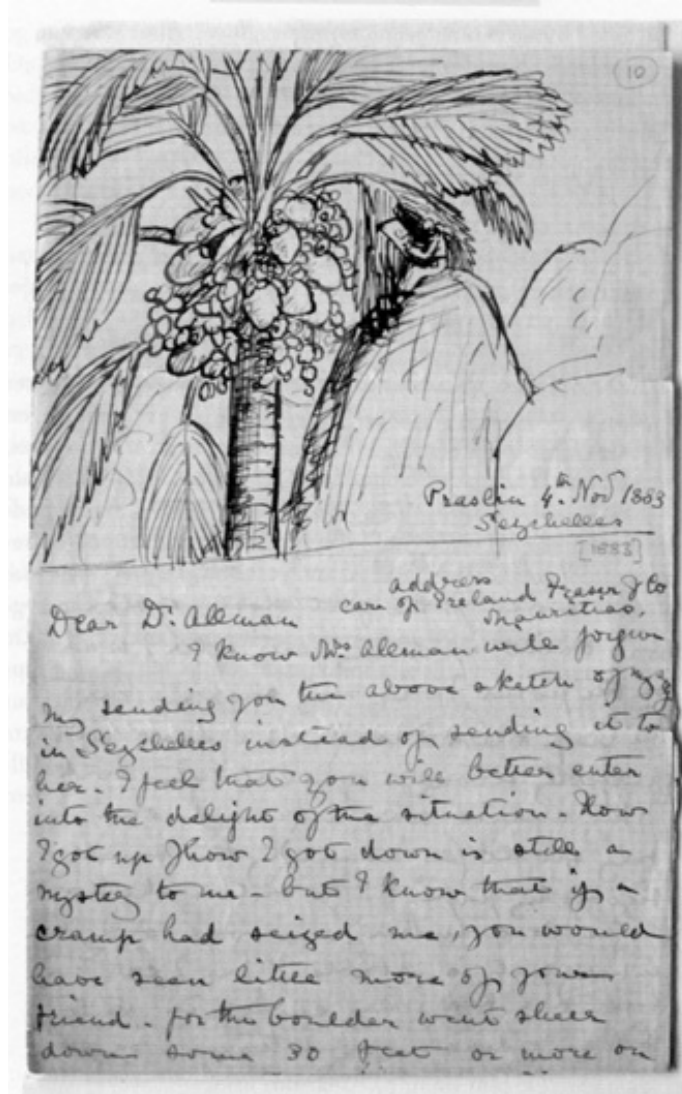 10
Praslin 4th Nov 1883
Seychelles
[1883]
address
Dear Dr. Allman care of Ireland Fraser & Co
Mauritius.
I know Mrs. Allman will forgive
my sending you the above sketch of
in Seychelles instead of sending it to
her. I feel that you will better enter
into the delight of the situation. How
I got up & how I got down is still a
mystery to me - but I know that if a
cramp had seized me, you would
have seen little more of your
friend - for the boulder went sheer
down some 30 feet or more on